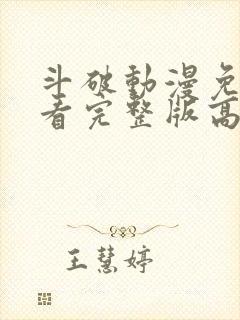 斗破動漫免
看完整版高
王慧婷